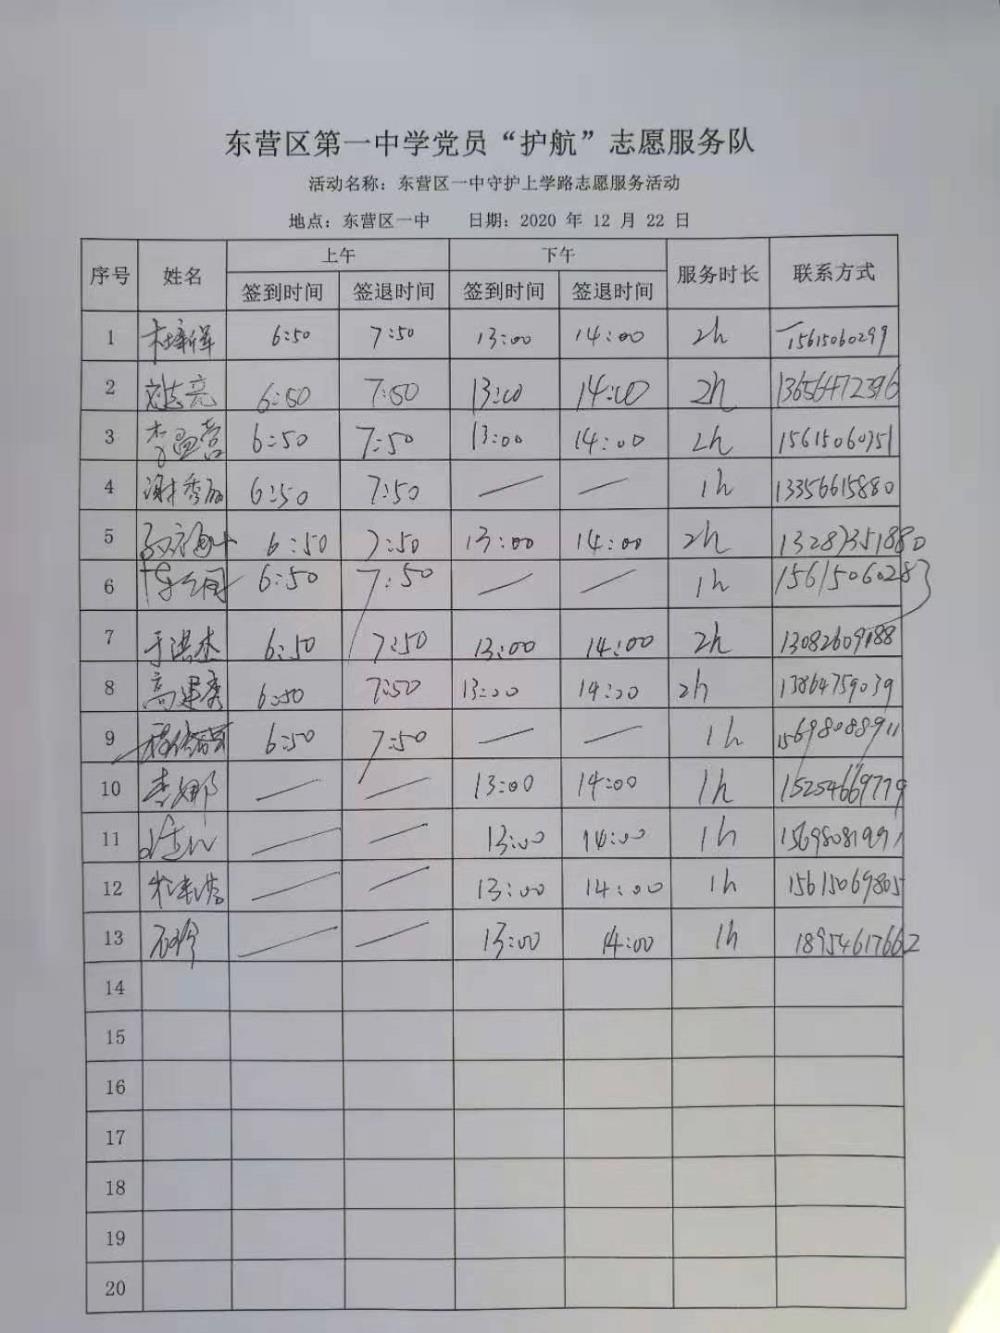 东营区第一中学党员“护航”志愿服务队
活动名称：东营区一中守护上学路志愿服务活动
地点：东营区一中 日期：2020 年 12 月 22 日
序号 姓名 上午 下午 服务时长 联系方式
签到时间 签退时间 签到时间 签退时间
1 6:50 7:50 13:00 14:00 2h 15615060299
2 刘志亮 6:50 7:50 13:00 14:00 2h 13656472396
3 李孟营 6:50 7:50 13:00 14:00 2h 15615060351
4 谢秀丽 6:50 7:50 — — 1h 13356615880
5 6:50 7:50 13:00 14:00 2h 13287351880
6 6:50 7:50 — — 1h 15615060283
7 于洪杰 6:50 7:50 13:00 14:00 2h 13082609188
8 高建秀 6:50 7:50 13:00 14:00 2h 13864759039
9 6:50 7:50 — — 1h 15698088911
10 李娜 — — 13:00 14:00 1h 15254669779
11 — — 13:00 14:00 1h 15698081991
12 — — 13:00 14:00 1h 15615069805
13 — — 13:00 14:00 1h 18954617662
14
15
16
17
18
19
20